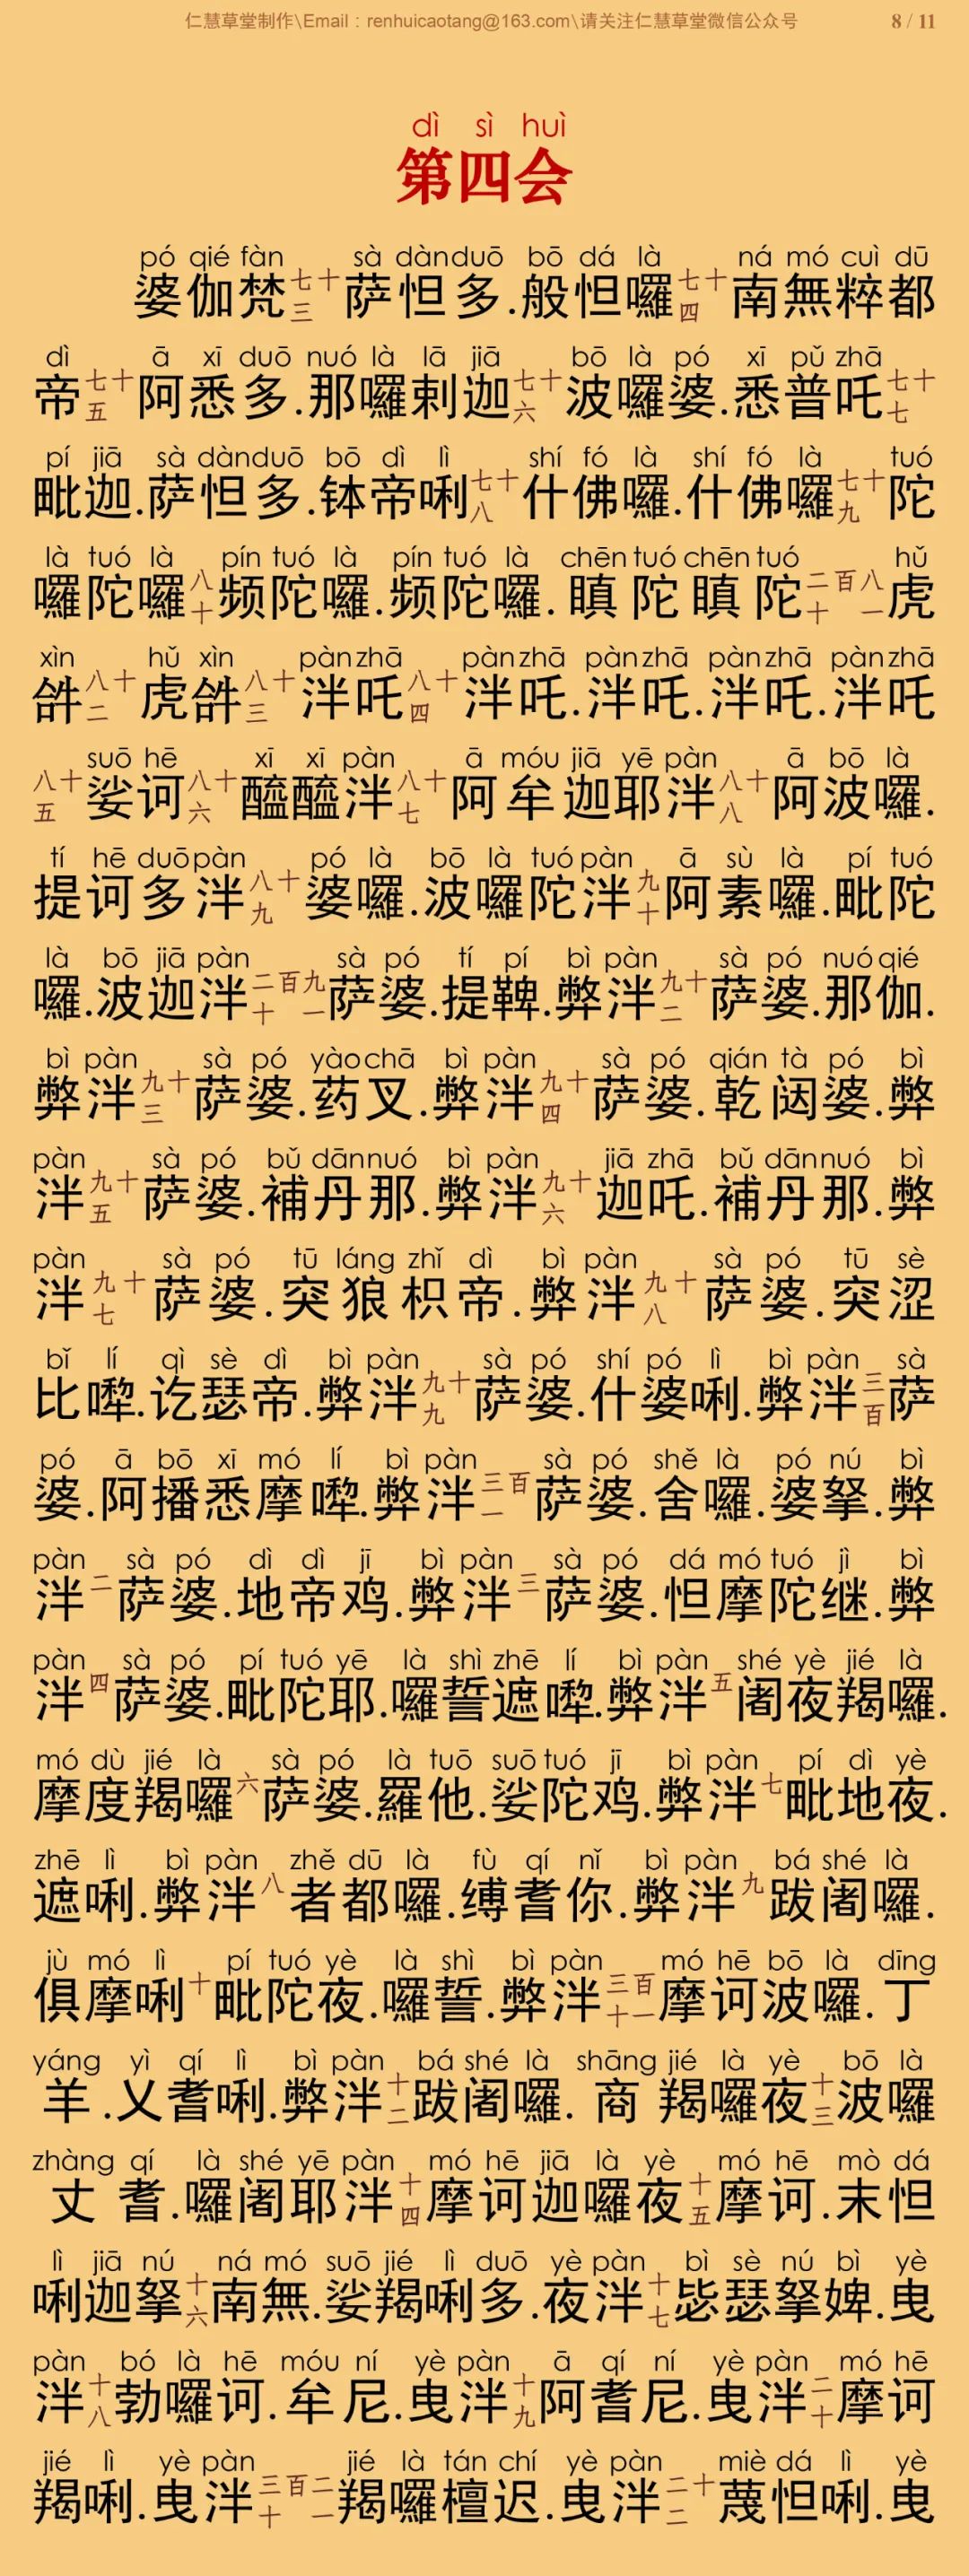 仁慧草堂制作\Email：renhuicaotang@163.com\请关注仁慧草堂微信公众号 8 / 11
dì sì huì
第四会
pó qié fàn sà dàn duō bō dá là ná mó cuì dū
婆伽梵七十三萨怛多.般怛囉七十四南無粹都
dì ā xī duō nuó là lā jiā bō là pó xī pǔ zhā
帝七十五阿悉多.那囉剌迦七十六波囉婆.悉普吒七十七
pí jiā sà dàn duō bō dì lì shí fó là shí fó là tuó
毗迦.萨怛多.钵帝唎七十八什佛囉.什佛囉七十九陀
là tuó là pín tuó là pín tuó là chēn tuó chēn tuó hǔ
囉陀囉八十频陀囉.频陀囉.瞋陀瞋陀二百八十一虎
xìn hǔ xìn pàn zhā pàn zhā pàn zhā pàn zhā pàn zhā
𤙖八十二虎𤙖八十三泮吒八十四泮吒.泮吒.泮吒.泮吒
suō hē xī xī pàn ā móu jiā yē pàn ā bō là
八十五娑诃八十六醯醯泮八十七阿牟迦耶泮八十八阿波囉.
tí hē duō pàn pó là bō là tuó pàn ā sù là pí tuó
提诃多泮八十九婆囉.波囉陀泮九十阿素囉.毗陀
là bō jiā pàn sà pó tí pí bì pàn sà pó nuó qié
囉.波迦泮二百九十一萨婆.提鞞.弊泮九十二萨婆.那伽.
bì pàn sà pó yào chā bì pàn sà pó qián tà pó bì
弊泮九十三萨婆.药叉.弊泮九十四萨婆.乾闼婆.弊
pàn sà pó bǔ dān nuó bì pàn jiā zhā bǔ dān nuó bì
泮九十五萨婆.補丹那.弊泮九十六迦吒.補丹那.弊
pàn sà pó tū láng zhǐ dì bì pàn sà pó tū sè
泮九十七萨婆.突狼枳帝.弊泮九十八萨婆.突涩
bǐ lí qì sè dì bì pàn sà pó shí pó lì bì pàn sà
比㗚.讫瑟帝.弊泮九十九萨婆.什婆唎.弊泮三百萨
pó ā bō xī mó lí bì pàn sà pó shě là pó nú bì
婆.阿播悉摩㗚.弊泮三百一萨婆.舍囉.婆拏.弊
pàn sà pó dì dì jī bì pàn sà pó dá mó tuó jì bì
泮二萨婆.地帝鸡.弊泮三萨婆.怛摩陀继.弊
pàn sà pó pí tuó yē là shì zhē lí bì pàn shé yè jié là
泮四萨婆.毗陀耶.囉誓遮㗚.弊泮五阇夜羯囉.
mó dù jié là sà pó là tuō suō tuó jī bì pàn pí dì yè
摩度羯囉六萨婆.羅他.娑陀鸡.弊泮七毗地夜.
zhē lì bì pàn zhě dū là fù qí nǐ bì pàn bá shé là
遮唎.弊泮八者都囉.缚耆你.弊泮九跋阇囉.
jù mó lì pí tuó yè là shì bì pàn mó hē bō là dīng
俱摩唎十毗陀夜.囉誓.弊泮三百十一摩诃波囉.丁
yáng yì qí lì bì pàn bá shé là shāng jié là yè bō là
羊.乂耆唎.弊泮十二跋阇囉.商羯囉夜十三波囉
zhàng qí là shé yē pàn mó hē jiā là yè mó hē mò dá
丈耆.囉阇耶泮十四摩诃迦囉夜十五摩诃.末怛
lì jiā nú ná mó suō jié lì duō yè pàn bì sè nú bì yè
唎迦拏十六南無.娑羯唎多.夜泮十七毖瑟拏婢.曳
pàn bó là hē móu ní yè pàn ā qí ní yè pàn mó hē
泮十八勃囉诃.牟尼.曳泮十九阿耆尼.曳泮二十摩诃
jié lì yè pàn jié là tán chí yè pàn miè dá lì yè
羯唎.曳泮三百二十一羯囉檀迟.曳泮二十二蔑怛唎.曳